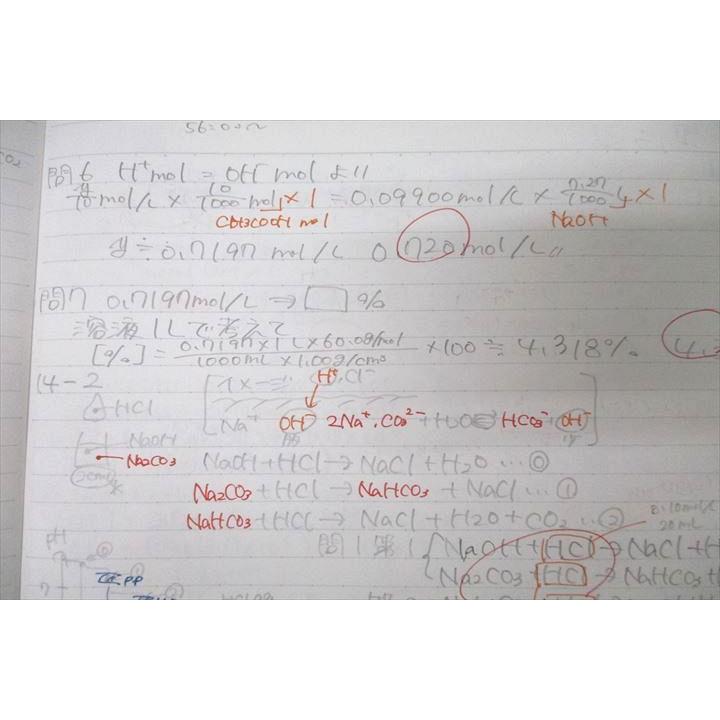 問6 H⁺mol = OH⁻molより
y/10 mol/L × 10/1000 mol × 1 = 0.09900mol/L × 7.27/1000 L × 1
CH3COOH mol NaOH
y≒0.7197 mol/L 0.720mol/L〃
問7 0.7197mol/L ⇒ □ %
溶液1Lで考えて
[%] = 0.7197×1L×60.0g/mol / 1000mL×1.00g/cm³ ×100 ≒ 4.318%.
14-2 H⁺,Cl⁻
HCl
Na⁺ OH⁻ 2Na⁺,CO₃²⁻ + H2O ⇌ HCO₃⁻ + OH⁻
NaOH
Na₂CO₃ NaOH+HCl→NaCl+H₂O…⓪
Na₂CO₃+HCl→NaHCO₃+NaCl…①
NaHCO₃+HCl→NaCl+H2O+CO₂…②
0.10mol/L
20mL
pH 問1 第1 NaOH+HCl→NaCl+H
Na₂CO₃+HCl→NaHCO₃+
PP